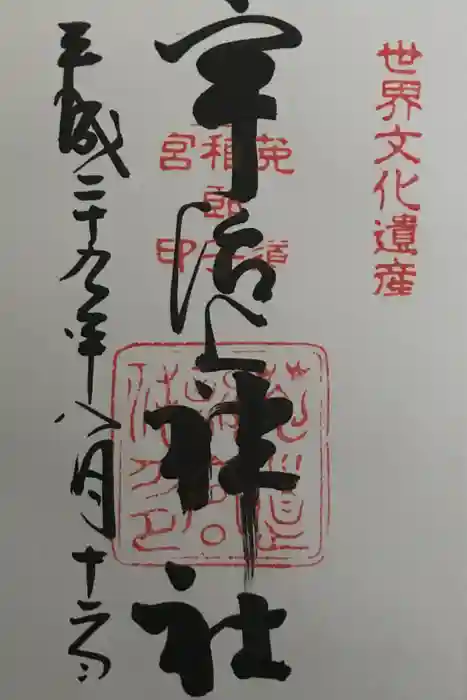 世界文化遺産
菟道
稚郎子
宮印
宇治上神社
平成二十九年八月十二日